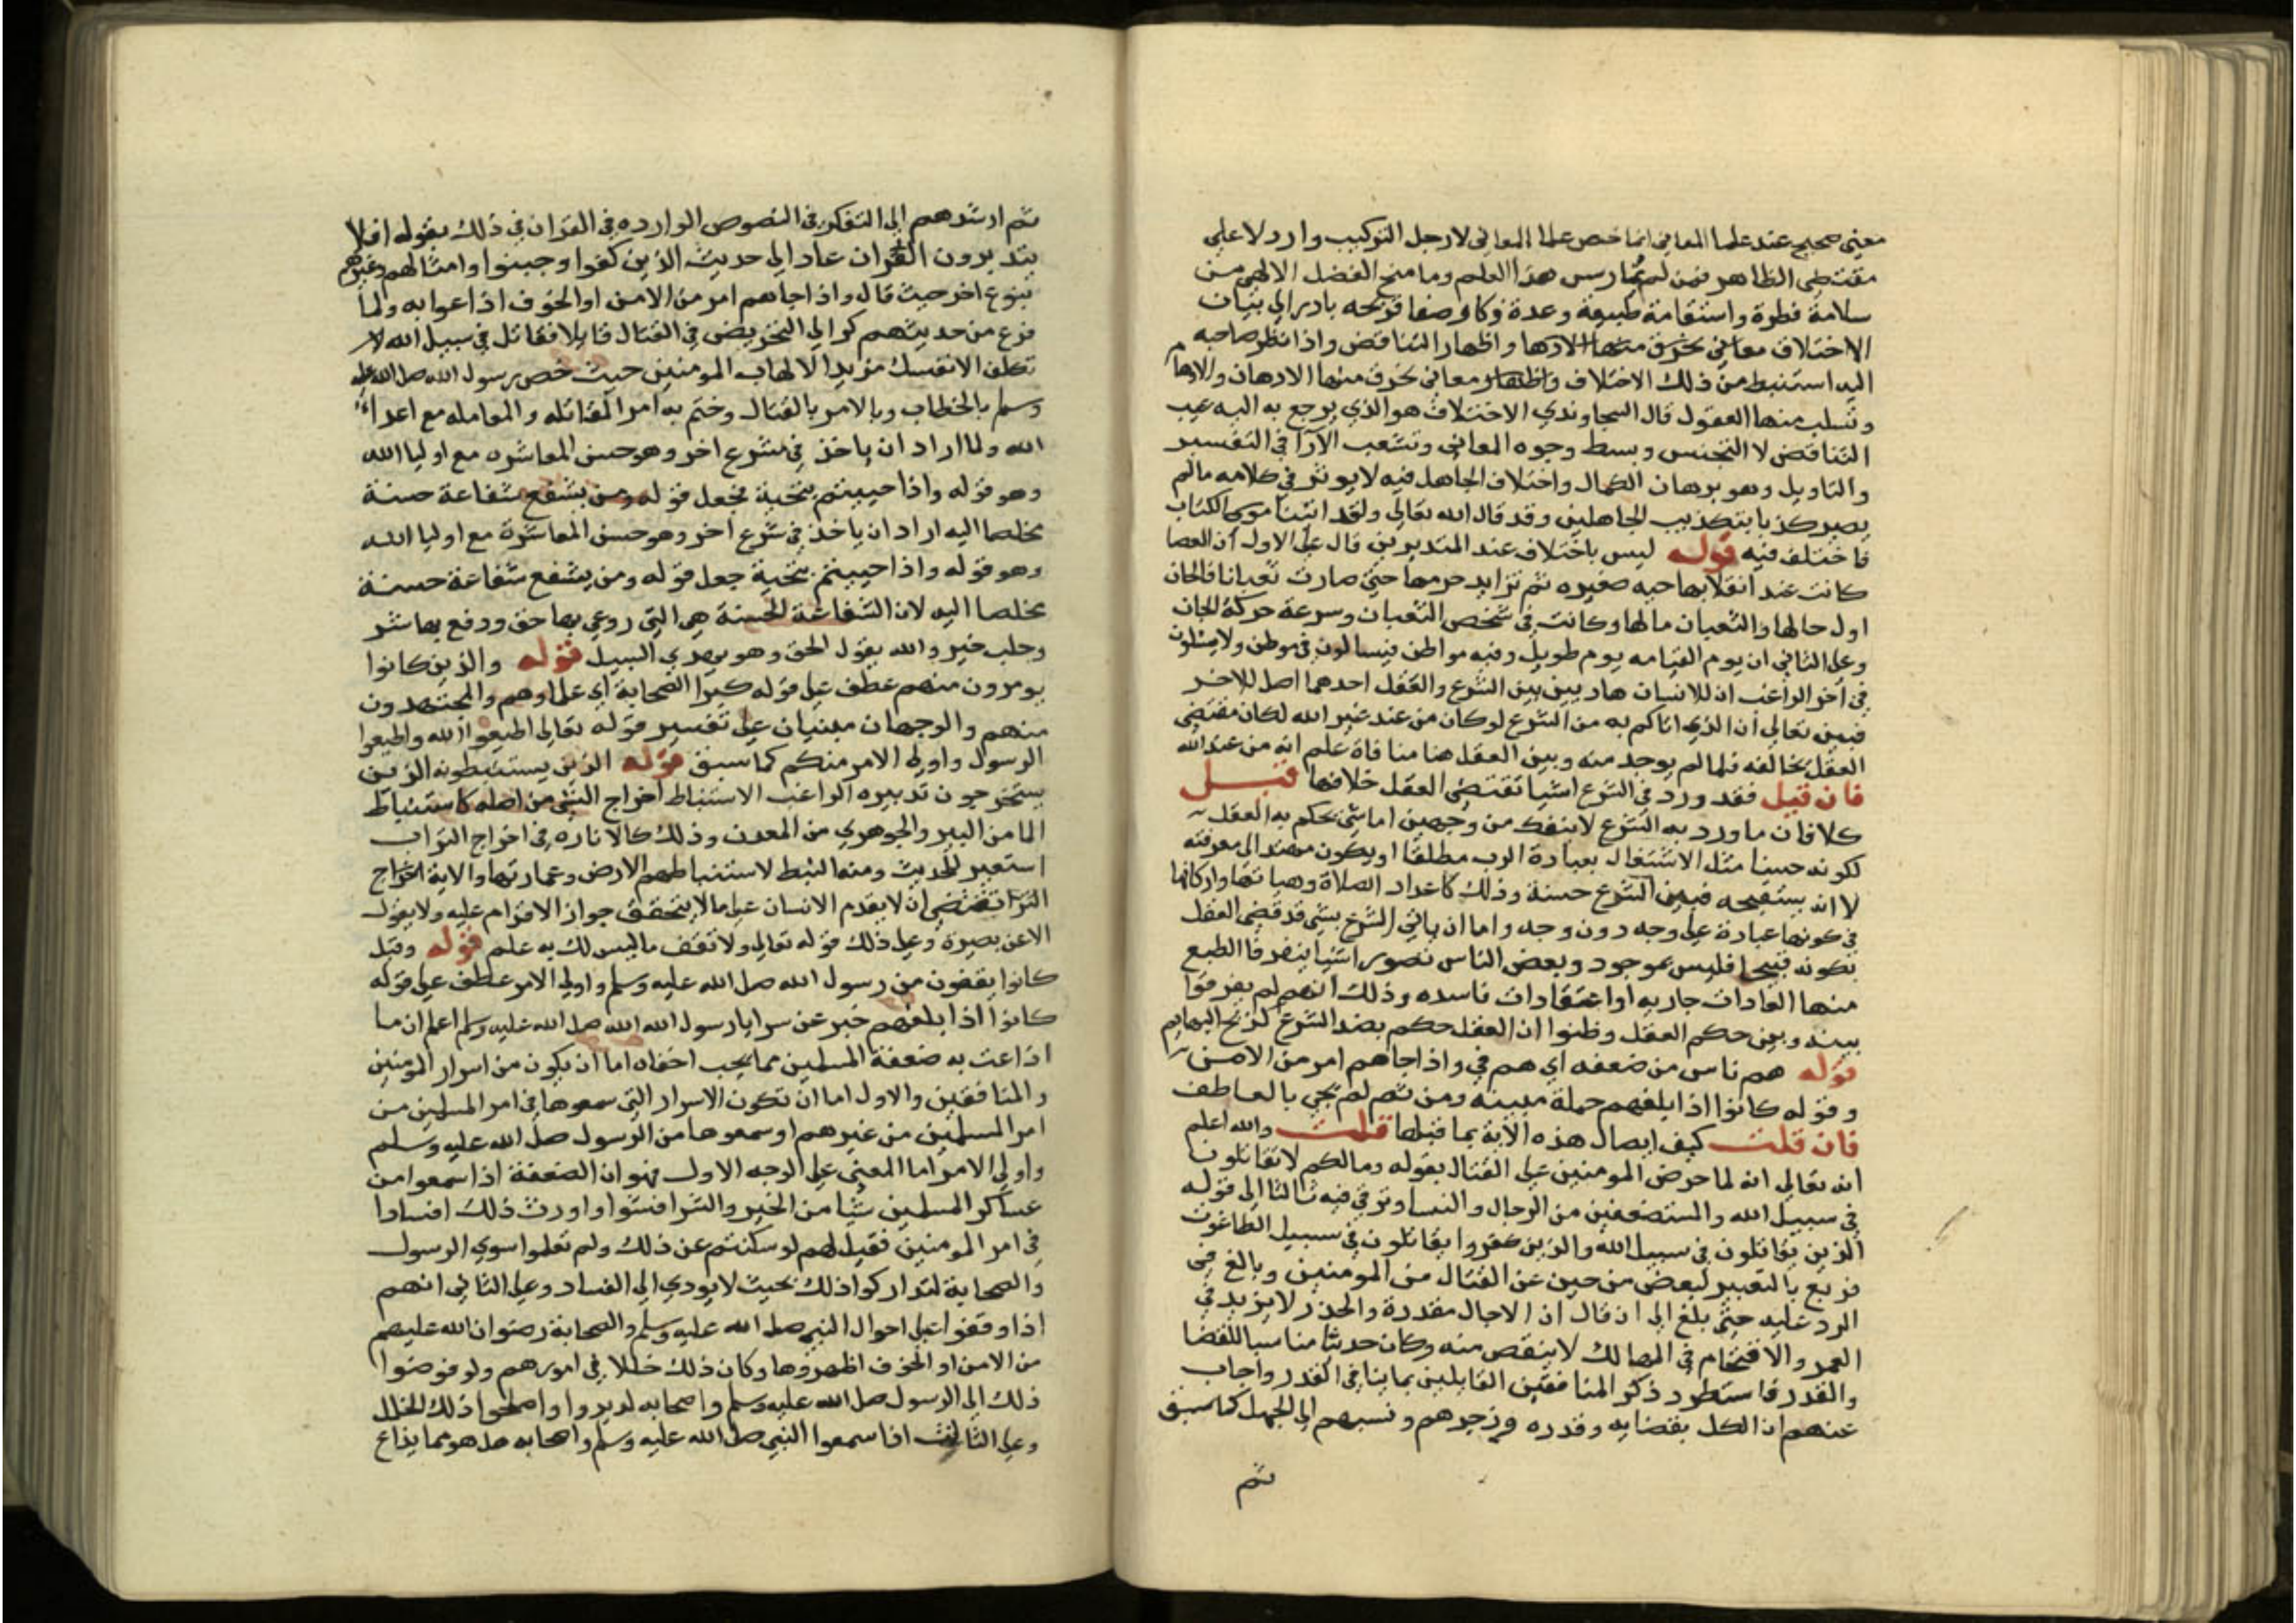 معني صحيح عند علما المعاني انما خص علما المعاني لان رجل التركيب وارد لا علي
مقتضي الظاهر فمن لم يمارس هذا العلم وما منح الفضل الالهي من
سلامة فطرة واستقامة طبيعة وعدة ذكا وصفا قريحه بادر الي بنيان
الاختلاف معاني تحرف منها الادها واظهار التناقض واذا نظر صاحبه
اليه استنبط من ذلك الاختلاف واظهار معاني تحرف منها الادهان والادها
وتسلب منها العقول قال السجاوندي الاختلاف هو الذي يرجع به اليه عيب
التناقض لا التجنس وبسط وجوه المعاني وتشعب الارآ في التفسير
والتاويل وهو برهان الكمال واختلاف الجاهل فيه لا يوثر في كلامه مالم
يصير كذبا بتكذيب الجاهلين وقد قال الله تعالي ولقد اتينا موسي الكتاب
فاختلف فيه قوله ليس باختلاف عند المتدبرين قال علي الاول ان العصا
كانت عند انقلابها حيه صغيره ثم تزايد جرمها حتي صارت ثعبانا فالجان
اول حالها والثعبان مالها وكانت في شخص الثعبان وسرعة حركة الجان
وعلي الثاني ان يوم القيامه يوم طويل وفيه مواطن فيسالون في موطن ولا يسئلون
في اخر الراغب ان للانسان هاديين بين الشرع والعقل احدهما اصل للاخر
فبين تعالي ان الذي اتاكم به من الشرع لو كان من عند غير الله لكان مقتضي
العقل يخالفه فلما لم يوجد منه وبين العقل هنا منافاة علم انه من عند الله
فان قيل فقد ورد في الشرع اشيا تقتضي العقل خلافها قيل
كلا فان ما ورد به الشرع لا ينفك من وجهين اما شي يحكم به العقل
لكونه حسنا مثل الاشتغال بعبادة الرب مطلقا او يكون مهتد الي معرفته
لا انه يستقبحه فبين الشرع حسنة وذلك كاعداد الصلاة وهياتها واركانها
في كونها عبادة علي وجه دون وجه واما ان ياتي الشرع بشي قد قضي العقل
بكونه قبيحا فليس بموجود وبعض الناس تصور اشيا ينفر فا الطبع
منها العادات جاريه او اعتقادات فاسده وذلك انهم لم يفرقوا
بينه وبين حكم العقل وظنوا ان العقل حكم بضد الشرع كذبح البهايم
قوله هم ناس من ضعفه اي هم في واذا جاهم امر من الامن
وقوله كانوا اذا بلغهم جملة مبينه ومن ثم لم يجي بالعاطف
فان قلت كيف ايصال هذه الاية بما قبلها قلت والله اعلم
انه تعالي انه لما حرض المومنين علي القتال بقوله ومالكم لا تقاتلون
في سبيل الله والمستضعفين من الرجال والنسا وترقي فيه ثالثا الي قوله
الذين يقاتلون في سبيل الله والذين كفروا يقاتلون في سبيل الطاغوت
فربع بالتعيير لبعض من جبن عن القتال من المومنين وبالغ في
الرد عليه حتي بلغ الي ان قال ان الاجال مقدرة والحذر لا يزيد في
العمر والاقتحام في المهالك لا ينقص منه وكان حديثا مناسبا للقضا
والقدر فاستطرد ذكر المنافقين القايلين بما ينافي القدر واجاب
عنهم ان الكل بقضايه وقدره وزجرهم ونسبهم الي الجهل كما سبق
ثم
ثم ارشدهم الي التفكر في النصوص الوارده في القران في ذلك بقوله افلا
يتدبرون القران عاد الي حديث الذين كفوا وجبنوا وامثالهم وغيرهم
بنوع اخر حيث قال واذا جاهم امر من الامن او الخوف اذاعوا به ولما
فرغ من حديثهم كر الي التحريض في القتال قايلا فقاتل في سبيل الله لا
تكلف الا نفسك مزيدا لالهاب المومنين حيث خص رسول الله صلى الله عليه
وسلم بالخطاب وبالامر بالقتال وختم به امر المقاتله والمعامله مع اعداء
الله ولما اراد ان ياخذ في مشرع اخر وهو حسن المعاشره مع اوليا الله
وهو قوله واذا حييتم بتحية فجعل قوله ومن يشفع شفاعة حسنة
مخلصا اليه اراد ان ياخذ في شرع اخر وهو حسن المعاشرة مع اوليا الله
وهو قوله واذا حييتم بتحية جعل قوله ومن يشفع شفاعة حسنة
مخلصا اليه لان الشفاعة الحسنة هي التي روعي بها حق ودفع بها شر
وجلب خير والله يقول الحق وهو يهدي السبيل قوله والذين كانوا
يومرون منهم عطف علي قوله كبرا الصحابة اي علماوهم والمجتهدون
منهم والوجهان مبنيان علي تفسير قوله تعالي اطيعوا الله واطيعوا
الرسول واولي الامر منكم كما سبق قوله الذين يستنبطونه الذين
يستخرجون تدبيره الراغب الاستنباط اخراج الشي من اصله كاستنباط
الما من البير والجوهري من المعدن وذلك كالاثاره في اخراج التراب
استعير للحديث ومنه النبط لاستنباطهم الارض وعمارتها والاية اخراج
التراب تقتضي ان لا يقدم الانسان علي مالا يتحقق جواز الاقدام عليه ولا يقول
الا عن بصيرة وعلي ذلك قوله تعالي ولا تقف ما ليس لك به علم قوله وقيل
كانوا يقفون من رسول الله صلى الله عليه وسلم واولي الامر عطف علي قوله
كانوا اذا بلغهم خبر عن سرايا رسول الله الله صلى الله عليه وسلم اعلم ان ما
اذاعت به ضعفة المسلمين مما يجب اخفاه اما ان يكون من اسرار المومنين
والمنافقين والاول اما ان تكون الاسرار التي سمعوها في امر المسلمين من
امر المسلمين من غيرهم او سمعوها من الرسول صلى الله عليه وسلم
واولي الامر اما المعني علي الوجه الاول فهو ان الضعفة اذا سمعوا من
عساكر المسلمين شيا من الخير والشر افشوا واورث ذلك افسادا
في امر المومنين فقيل لهم لو سكتم عن ذلك ولم تعلموا سوي الرسول
والصحابة لتداركوا ذلك بحيث لا يودي الي الفساد وعلي الثاني انهم
اذا وقفوا علي احوال النبي صلى الله عليه وسلم والصحابة رضوان الله عليهم
من الامن او الخوف اظهروها وكان ذلك خللا في امورهم ولو فوضوا
ذلك الي الرسول صلى الله عليه وسلم واصحابه لدبروا واصلحوا ذلك الخلل
وعلي الثالث اذا سمعوا النبي صلى الله عليه وسلم واصحابه هل هو مما يذاع